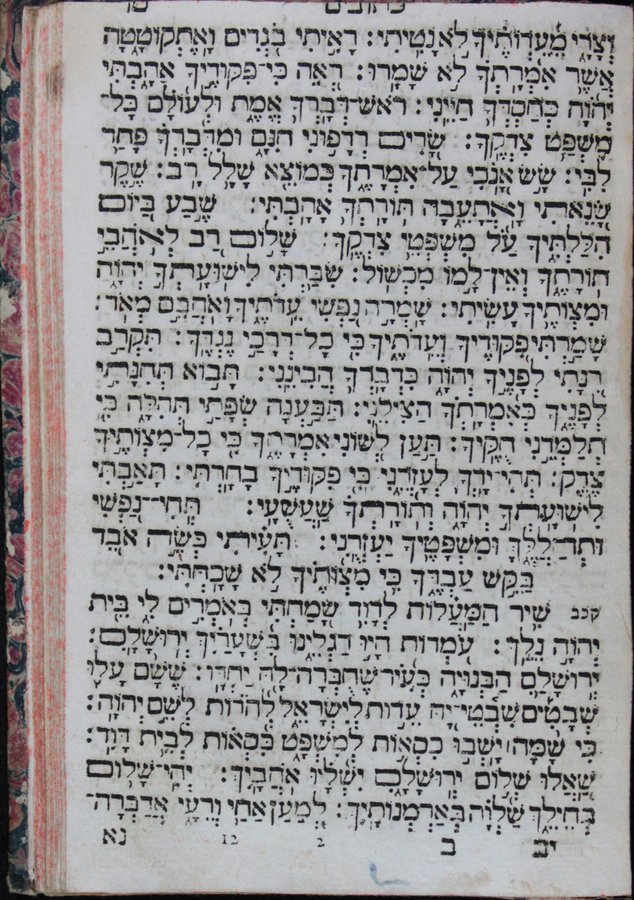 כתובים
וְצָרָ֑י מֵ֝עֵדְוֺתֶ֗יךָ לֹ֣א נָטִֽיתִי׃ רָאִ֣יתִי בֹ֭גְדִים וָֽאֶתְקוֹטָטָ֑ה
אֲשֶׁ֥ר אִ֝מְרָתְךָ֗ לֹ֣א שָׁמָֽרוּ׃ רְ֭אֵה כִּי־פִקּוּדֶ֣יךָ אָהָ֑בְתִּי
יְ֝הוָ֗ה כְּֽחַסְדְּךָ֥ חַיֵּֽינִי׃ רֹאשׁ־דְּבָרְךָ֥ אֱמֶ֑ת וּ֝לְעוֹלָ֗ם כָּל־
מִשְׁפַּ֥ט צִדְקֶֽךָ׃ שָׂ֭רִים רְדָפ֣וּנִי חִנָּ֑ם וּ֝מִדְּבָרְךָ֗ פָּחַ֥ד
לִבִּֽי׃ שָׂ֣שׂ אָ֭נֹכִֽי עַל־אִמְרָתֶ֑ךָ כְּ֝מוֹצֵ֗א שָׁלָ֥ל רָֽב׃ שֶׁ֣קֶר
שָׂ֭נֵאתִי וָאֲתַעֵ֑בָה תּוֹרָתְךָ֥ אָהָֽבְתִּי׃ שֶׁ֣בַע בַּ֭יּוֹם
הִלַּלְתִּ֑יךָ עַ֝֗ל מִשְׁפְּטֵ֥י צִדְקֶֽךָ׃ שָׁל֣וֹם רָ֭ב לְאֹהֲבֵ֣י
תוֹרָתֶ֑ךָ וְאֵֽין־לָ֥מוֹ מִכְשֽׁוֹל׃ שִׂבַּ֣רְתִּי לִֽישׁוּעָתְךָ֣ יְהוָ֑ה
וּֽמִצְוֺתֶ֥יךָ עָשִֽׂיתִי׃ שָֽׁמְרָ֣ה נַ֭פְשִׁי עֵדֹתֶ֑יךָ וָאֹהֲבֵ֥ם מְאֹֽד׃
שָׁמַ֣רְתִּי פִ֭קּוּדֶיךָ וְעֵדֹתֶ֑יךָ כִּ֖י כָל־דְּרָכַ֣י נֶגְדֶּֽךָ׃ תִּקְרַ֤ב
רִנָּתִ֣י לְפָנֶ֣יךָ יְהוָ֑ה כִּדְבָרְךָ֥ הֲבִינֵֽנִי׃ תָּב֣וֹא תְחִנָּתִ֣י
לְפָנֶ֑יךָ כְּ֝אִמְרָתְךָ֗ הַצִּילֵֽנִי׃ תַּבַּ֣עְנָה שְׂפָתַ֣י תְּהִלָּ֑ה כִּ֖י
תְלַמְּדֵ֣נִי חֻקֶּֽיךָ׃ תַּ֣עַן לְ֭שׁוֹנִי אִמְרָתֶ֑ךָ כִּ֖י כָל־מִצְוֺתֶ֣יךָ
צֶּֽדֶק׃ תְּהִֽי־יָדְךָ֥ לְעָזְרֵ֑נִי כִּ֖י פִקּוּדֶ֣יךָ בָחָֽרְתִּי׃ תָּאַ֣בְתִּי
לִֽישׁוּעָתְךָ֣ יְהוָ֑ה וְ֝תוֹרָתְךָ֗ שַׁעֲשֻׁעָֽי׃ תְּֽחִי־נַ֭פְשִׁי
וּֽתְהַֽלְלֶ֑ךָּ וּֽמִשְׁפָּטֶ֥ךָ יַעְזְרֻֽנִי׃ תָּעִ֗יתִי כְּשֶׂ֣ה אֹ֭בֵד
בַּקֵּ֣שׁ עַבְדֶּ֑ךָ כִּ֥י מִ֝צְוֺתֶ֗יךָ לֹ֣א שָׁכָֽחְתִּי׃
קכב שִׁ֥יר הַֽמַּעֲל֗וֹת לְדָ֫וִ֥ד שָׂ֭מַחְתִּי בְּאֹמְרִ֣ים לִ֑י בֵּ֖ית
יְהוָ֣ה נֵלֵֽךְ׃ עֹ֭מְדוֹת הָי֣וּ רַגְלֵ֑ינוּ בִּ֝שְׁעָרַ֗יִךְ יְרוּשָׁלָֽ͏ִם׃
יְרוּשָׁלִַ֥ם הַבְּנוּיָ֑ה כְּ֝עִ֗יר שֶׁחֻבְּרָה־לָּ֥הּ יַחְדָּֽו׃ שֶׁשָּׁ֨ם עָל֪וּ
שְׁבָטִ֡ים שִׁבְטֵי־יָ֭הּ עֵד֣וּת לְיִשְׂרָאֵ֑ל לְ֝הֹד֗וֹת לְשֵׁ֣ם יְהוָֽה׃
כִּ֤י שָׁ֨מָּה ׀ יָשְׁב֣וּ כִסְא֣וֹת לְמִשְׁפָּ֑ט כִּ֝סְא֗וֹת לְבֵ֣ית דָּוִֽד׃
שַׁ֭אֲלוּ שְׁל֣וֹם יְרוּשָׁלָ֑͏ִם יִ֝שְׁלָ֗יוּ אֹהֲבָֽיִךְ׃ יְהִֽי־שָׁל֥וֹם
בְּחֵילֵ֑ךְ שַׁ֝לְוָ֗ה בְּאַרְמְנוֹתָֽיִךְ׃ לְ֭מַעַן אַחַ֣י וְרֵעָ֑י אֲדַבְּרָה־
יב ב 2 12 נא